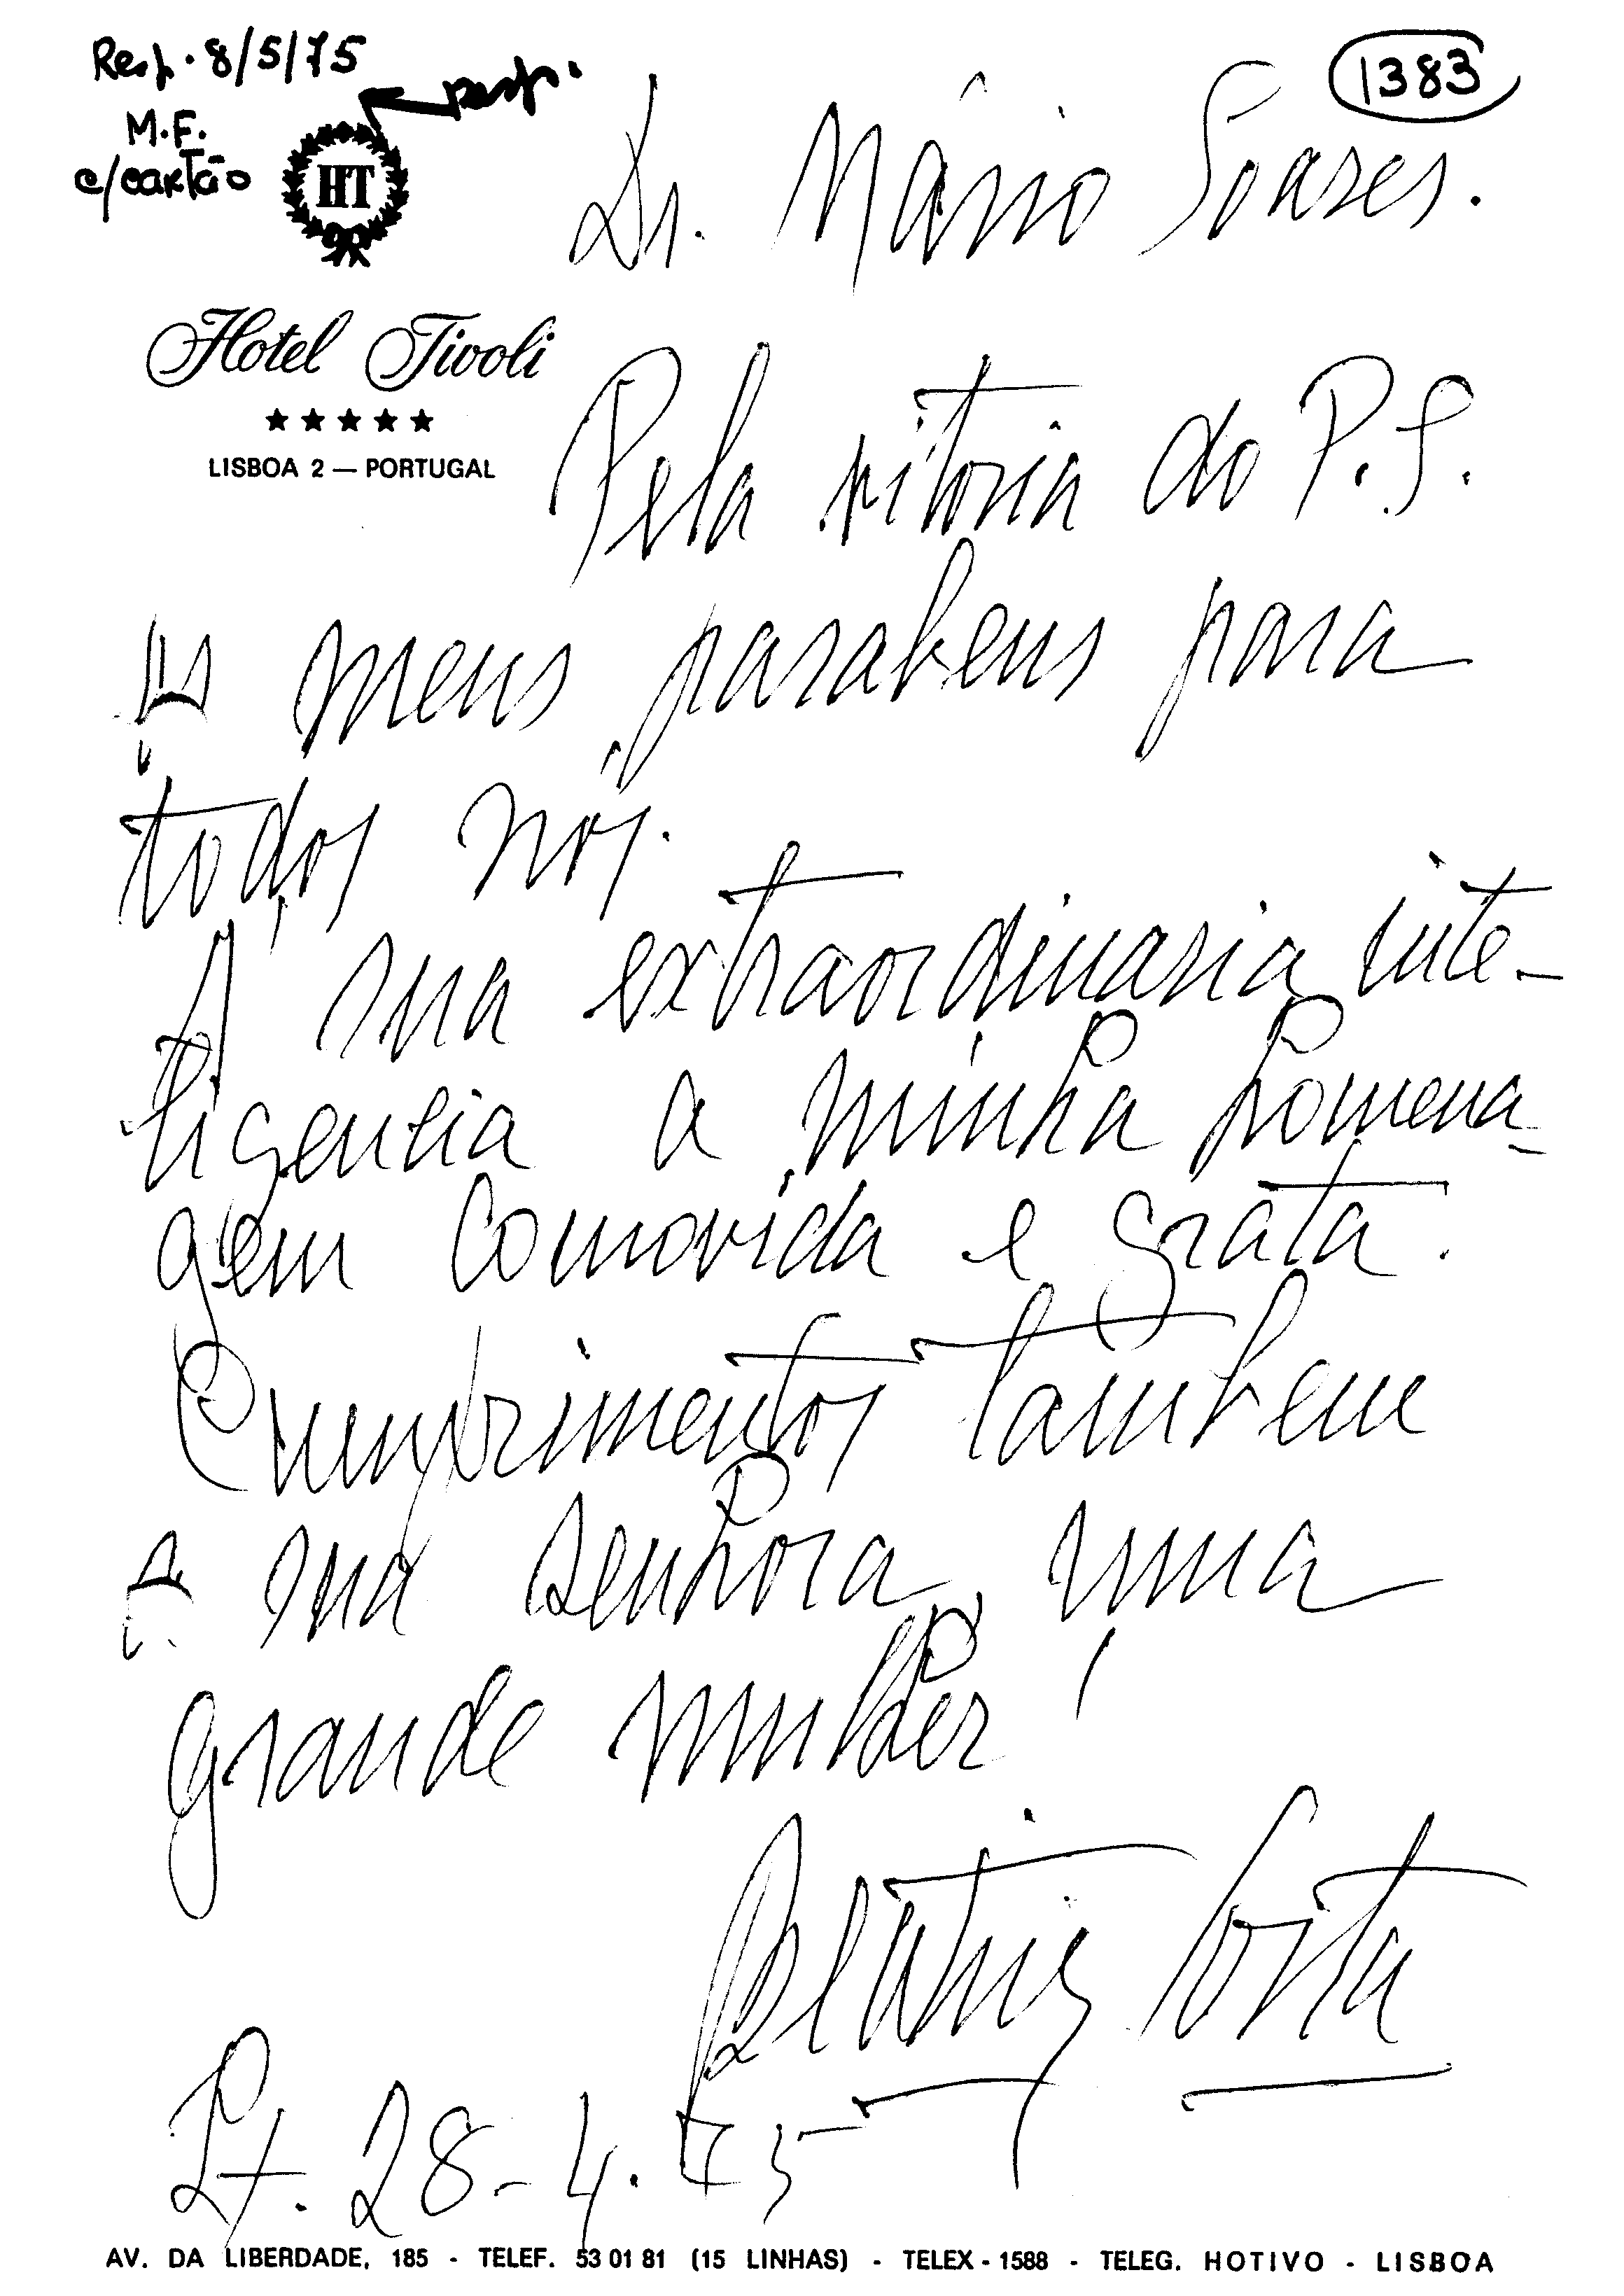 Resp. 8/5/75
resp.
M.F.
c/cartão
1383
HT
Hotel Tivoli
LISBOA 2 — PORTUGAL
Dr. Mário Soares.
Pela vitoria do P.S.
os meus parabens para
todos nós.
A sua extraordinaria inte-
ligencia a minha homena-
gem comovida e grata.
Cumprimentos tambem
a sua senhora, uma
grande mulher!
Beatriz Costa
Lx. 28-4.75
AV. DA LIBERDADE, 185 - TELEF. 53 01 81 (15 LINHAS) - TELEX - 1588 - TELEG. HOTIVO - LISBOA